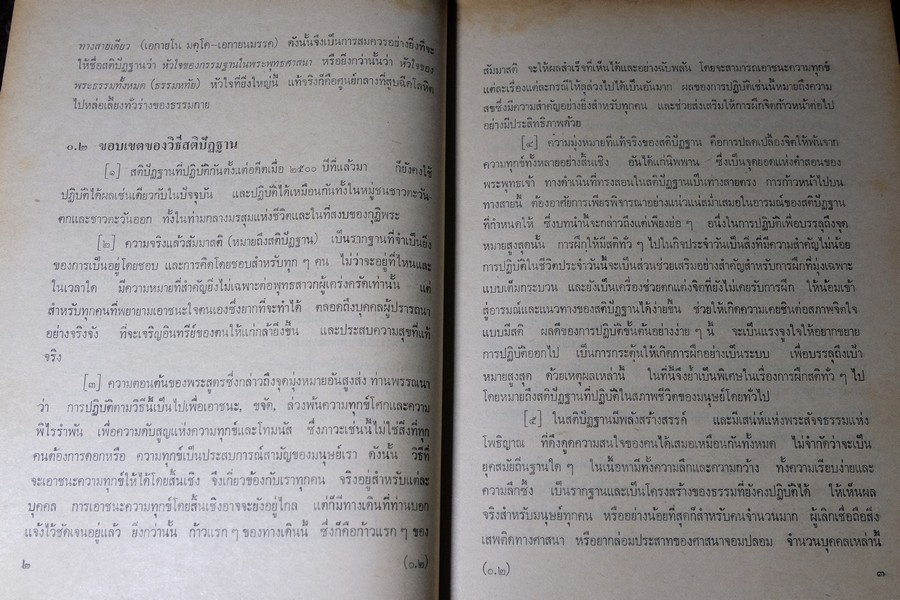 ทางสายเดียว (เอกายโน มคฺโค-เอกายนมรรค) ดังนั้นจึงเป็นการสมควรอย่างยิ่งที่จะ
ให้ชื่อสติปัฏฐานว่า หัวใจของกรรมฐานในพระพุทธศาสนา หรือยิ่งกว่านั้นว่า หัวใจของ
พระธรรมทั้งหมด (ธรรมหทัย) หัวใจที่ยิ่งใหญ่นี้ แท้จริงก็คือศูนย์กลางที่สูบฉีดโลหิต
ไปหล่อเลี้ยงทั่วร่างของธรรมกาย
๐.๒ ขอบเขตของวิธีสติปัฏฐาน
[๑] สติปัฏฐานที่ปฏิบัติกันตั้งแต่อดีตเมื่อ ๒๕๐๐ ปีที่แล้วมา ก็ยังคงใช้
ปฏิบัติได้ผลเช่นเดียวกับในปัจจุบัน และปฏิบัติได้เหมือนกันทั้งในหมู่ชนชาวตะวัน-
ตกและชาวตะวันออก ทั้งในท่ามกลางมรสุมแห่งชีวิตและในที่สงบของกุฏิพระ
[๒] ความจริงแล้วสัมมาสติ (หมายถึงสติปัฏฐาน) เป็นรากฐานที่จำเป็นยิ่ง
ของการเป็นอยู่โดยชอบ และการคิดโดยชอบสำหรับทุก ๆ คน ไม่ว่าจะอยู่ที่ไหนและ
ในเวลาใด มีความหมายที่สำคัญยิ่งไม่เฉพาะต่อพุทธสาวกผู้เคร่งครัดเท่านั้น แต่
สำหรับทุกคนที่พยายามเอาชนะใจตนเองซึ่งยากที่จะทำได้ ตลอดถึงบุคคลผู้ปรารถนา
อย่างจริงจัง ที่จะเจริญอินทรีย์ของตนให้แก่กล้ายิ่งขึ้น และประสบความสุขที่แท้
จริง
[๓] ความตอนต้นของพระสูตรซึ่งกล่าวถึงจุดมุ่งหมายอันสูงส่ง ท่านพรรณนา
ว่า การปฏิบัติตามวิธีนี้เป็นไปเพื่อเอาชนะ, ขจัด, ล่วงพ้นความทุกข์โศกและความ
พิไรรำพัน เพื่อความดับสูญแห่งความทุกข์และโทมนัส ซึ่งภาวะเช่นนี้ไม่ใช่สิ่งที่ทุก
คนต้องการดอกหรือ ความทุกข์เป็นประสบการณ์สามัญของมนุษย์เรา ดังนั้น วิธีที่
จะเอาชนะความทุกข์ให้ได้โดยสิ้นเชิง จึงเกี่ยวข้องกับเราทุกคน จริงอยู่สำหรับแต่ละ
บุคคล การเอาชนะความทุกข์โดยสิ้นเชิงอาจจะยังอยู่ไกล แต่ก็มีทางเดินที่ท่านบอก
แจ้งไว้ชัดเจนอยู่แล้ว ยิ่งกว่านั้น ก้าวแรก ๆ ของทางเดินนี้ ซึ่งก็คือก้าวแรก ๆ ของ
๒ (๐.๒)
สัมมาสติ จะให้ผลสำเร็จที่เห็นได้และอย่างฉับพลัน โดยจะสามารถเอาชนะความทุกข์
แต่ละเรื่องแต่ละกรณีให้ลุล่วงไปได้เป็นอันมาก ผลของการปฏิบัติเช่นนี้หมายถึงความ
สุขซึ่งมีความสำคัญอย่างยิ่งสำหรับทุกคน และช่วยส่งเสริมให้การฝึกจิตก้าวหน้าต่อไป
อย่างมีประสิทธิภาพด้วย
[๔] ความมุ่งหมายที่แท้จริงของสติปัฏฐาน คือการปลดเปลื้องจิตให้พ้นจาก
ความทุกข์ทั้งหลายอย่างสิ้นเชิง อันได้แก่นิพพาน ซึ่งเป็นจุดยอดแห่งคำสอนของ
พระพุทธเจ้า ทางดำเนินที่ทรงสอนในสติปัฏฐานเป็นทางสายตรง การก้าวหน้าไปบน
ทางสายนี้ ต้องอาศัยการเพียรพิจารณาอย่างแน่วแน่สม่ำเสมอในอารมณ์ของสติปัฏฐาน
ที่กำหนดให้ ซึ่งบทนำนี้จะกล่าวถึงแต่เพียงย่อ ๆ อนึ่งในการปฏิบัติเพื่อบรรลุถึงจุด
หมายสูงสุดนั้น การฝึกให้มีสติทั่ว ๆ ไปในกิจประจำวันเป็นสิ่งที่มีความสำคัญไม่น้อย
การปฏิบัติในชีวิตประจำวันนี้จะเป็นส่วนช่วยเสริมอย่างสำคัญสำหรับการฝึกที่มุ่งเฉพาะ
แบบเต็มกระบวน และยังเป็นเครื่องช่วยตกแต่งจิตที่ยังไม่เคยรับการฝึก ให้น้อมเข้า
สู่อารมณ์และแนวทางของสติปัฏฐานได้ง่ายขึ้น ช่วยให้เกิดความเคยชินต่อสภาพจิตใจ
แบบมีสติ ผลดีของการปฏิบัติขั้นต้นอย่างง่าย ๆ นี้ จะเป็นแรงจูงใจให้อยากขยาย
การปฏิบัติออกไป เป็นการกระตุ้นให้เกิดการฝึกอย่างเป็นระบบ เพื่อบรรลุถึงเป้า
หมายสูงสุด ด้วยเหตุผลเหล่านี้ ในที่นี้จึงย้ำเป็นพิเศษในเรื่องการฝึกสติทั่ว ๆ ไป
โดยหมายถึงสติปัฏฐานที่ปฏิบัติในสภาพชีวิตของมนุษย์โดยทั่วไป
[๕] ในสติปัฏฐานมีพลังสร้างสรรค์ และมีเสน่ห์แห่งพระสัจจธรรมแห่ง
โพธิญาณ ที่ดึงดูดความสนใจของคนได้เสมอเหมือนกันทั้งหมด ไม่จำกัดว่าจะเป็น
ยุคสมัยถิ่นฐานใด ๆ ในเนื้อหามีทั้งความลึกและความกว้าง ทั้งความเรียบง่ายและ
ความลึกซึ้ง เป็นรากฐานและเป็นโครงสร้างของธรรมที่ยังคงปฏิบัติได้ ให้เห็นผล
จริงสำหรับมนุษย์ทุกคน หรืออย่างน้อยที่สุดก็สำหรับคนจำนวนมาก ผู้เลิกเชื่อถือสิ่ง
เสพติดทางศาสนา หรือยากล่อมประสาทของศาสนาจอมปลอม จำนวนบุคคลเหล่านี้
(๐.๒) ๓